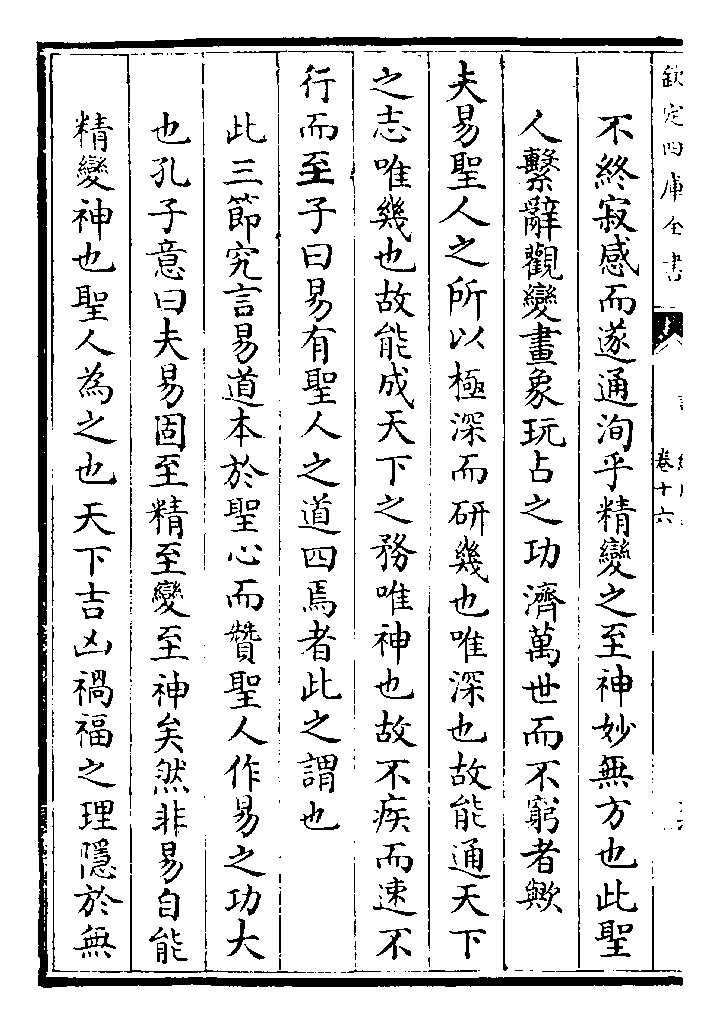 欽定四庫全書
卷十六
不終寂感而遂通洵乎精變之至神妙無方也此聖
人繫辭觀變畫象玩占之功濟萬世而不窮者歟
夫易聖人之所以極深而研幾也唯深也故能通天下
之志唯幾也故能成天下之務唯神也故不疾而速不
行而至子曰易有聖人之道四焉者此之謂也
此三節究言易道本於聖心而贊聖人作易之功大
也孔子意曰夫易固至精至變至神矣然非易自能
精變神也聖人為之也天下吉凶禍福之理隱於無